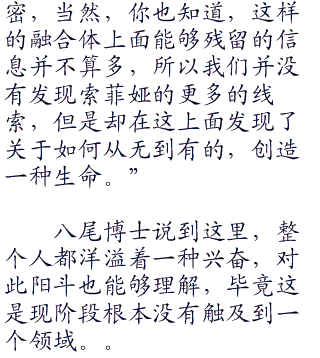 密，当然，你也知道，这样
的融合体上面能够残留的信
息并不算多，所以我们并没
有发现索菲娅的更多的线
索，但是却在这上面发现了
关于如何从无到有的，创造
一种生命。”
八尾博士说到这里，整
个人都洋溢着一种兴奋，对
此阳斗也能够理解，毕竟这
是现阶段根本没有触及到一
个领域。。